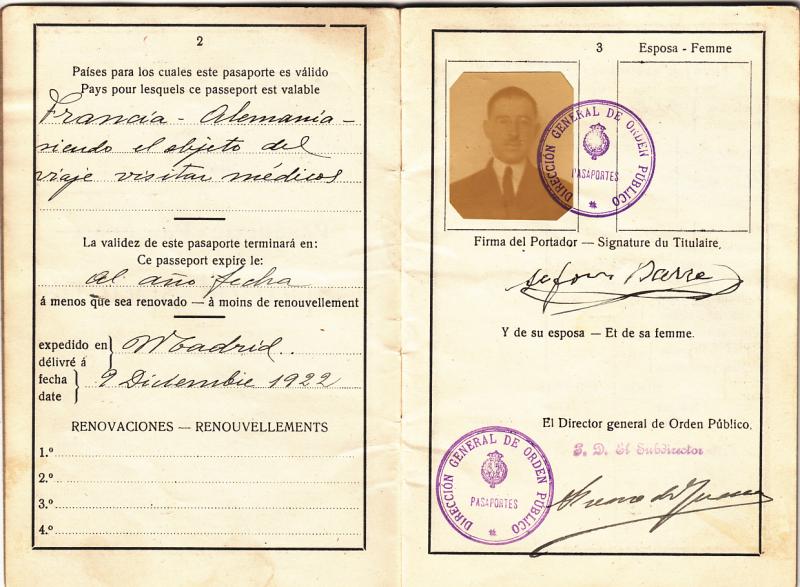 2
Países para los cuales este pasaporte es válido
Pays pour lesquels ce passeport est valable
Francia - Alemania -
siendo el objeto del
viaje visitar médicos
La validez de este pasaporte terminará en:
Ce passeport expire le:
al año fecha
á menos que sea renovado — à moins de renouvellement
expedido en
délivré á
Madrid.
fecha
date
9 Diciembre 1922
RENOVACIONES — RENOUVELLEMENTS
1.º
2.º
3.º
4.º
3
Esposa - Femme
DIRECCIÓN GENERAL DE ORDEN PÚBLICO
PASAPORTES
Firma del Portador — Signature du Titulaire.
Y de su esposa — Et de sa femme.
El Director general de Orden Público.
El Subdirector
DIRECCIÓN GENERAL DE ORDEN PÚBLICO
PASAPORTES